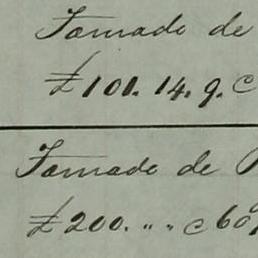 Tomado de
£101. 14. 9. c
Tomado de
£200. " " c 60